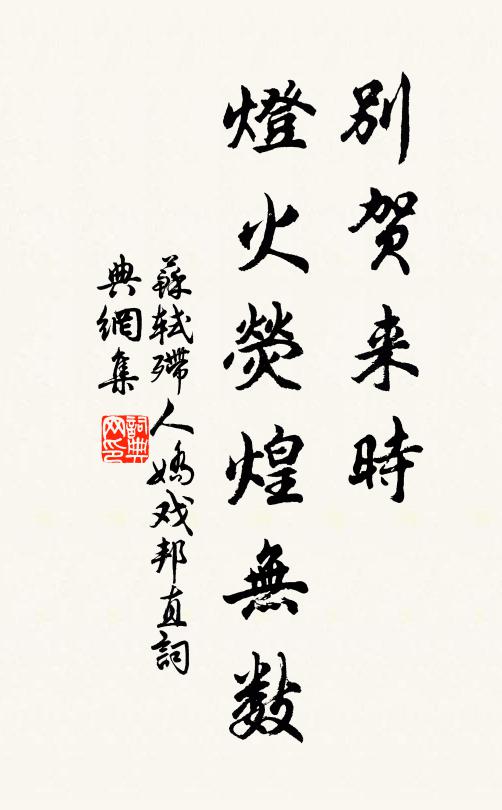 別贺来時
燈火熒煌無数
蘇軾殢人嬌戏邦直詞
典網集
詞典
网印